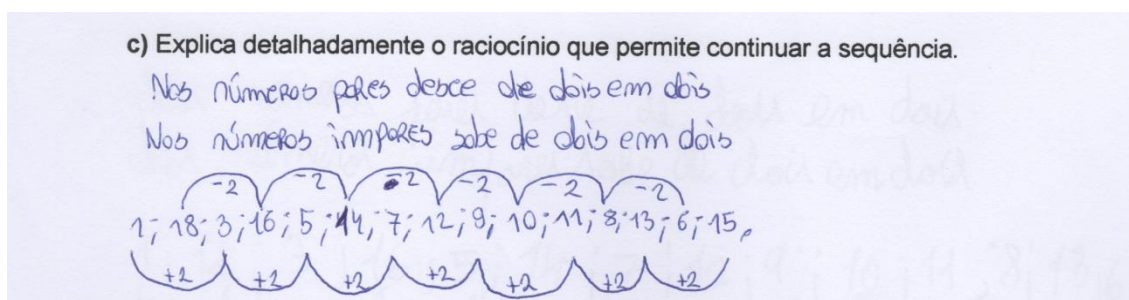 c) Explica detalhadamente o raciocínio que permite continuar a sequência.
Nos números pares desce de dois em dois
Nos números impares sobe de dois em dois
-2 -2 -2 -2 -2 -2
1; 18; 3; 16; 5; 14; 7; 12; 9; 10; 11; 8; 13; 6; 15.
+2 +2 +2 +2 +2 +2 +2